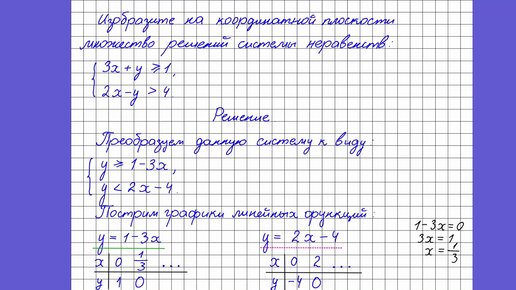 Изобразите на координатной плоскости
множество решений системы неравенств:
{ 3x + y ⩾ 1,
2x - y > 4.
Решение
Преобразуем данную систему к виду:
{ y ⩾ 1 - 3x,
y < 2x - 4.
Пострим графики линейных функций:
y = 1 - 3x
x | 0 | 1/3 ...
y | 1 | 0
y = 2x - 4
x | 0 | 2 ...
y | -4 | 0
1 - 3x = 0
3x = 1,
x = 1/3